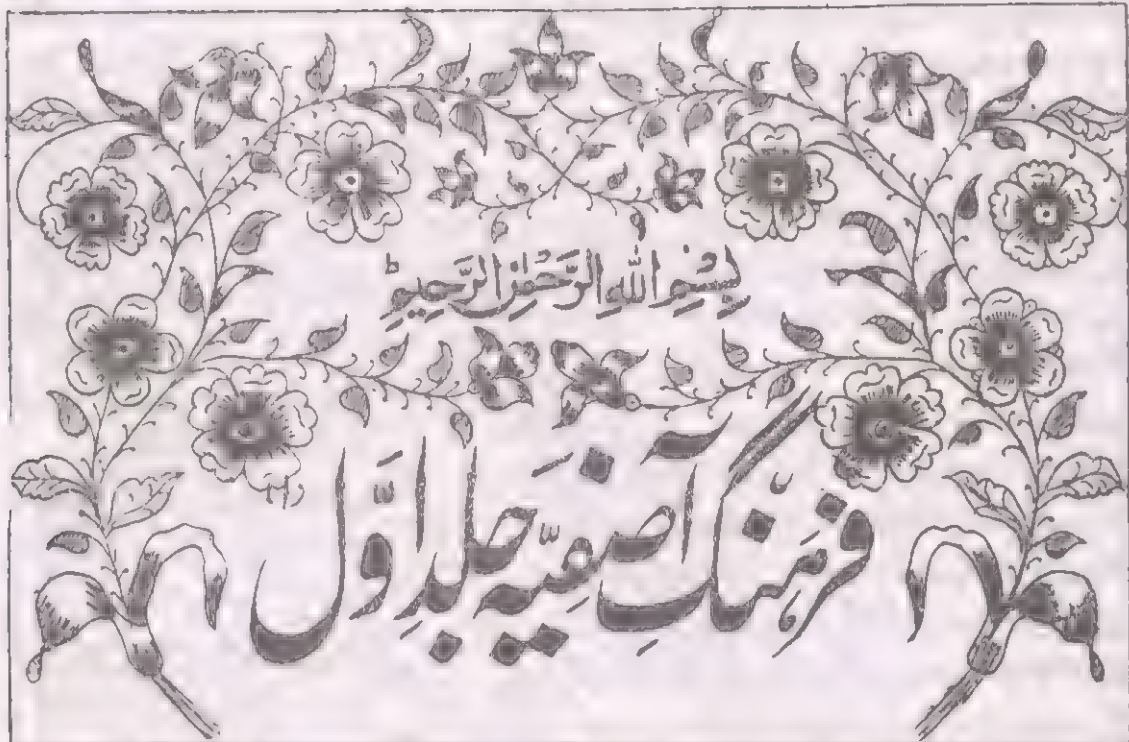 بِسْمِ اللهِ الرَّحْمٰنِ الرَّحِيْمِ
فرہنگِ آصفیہ جلد اوّل